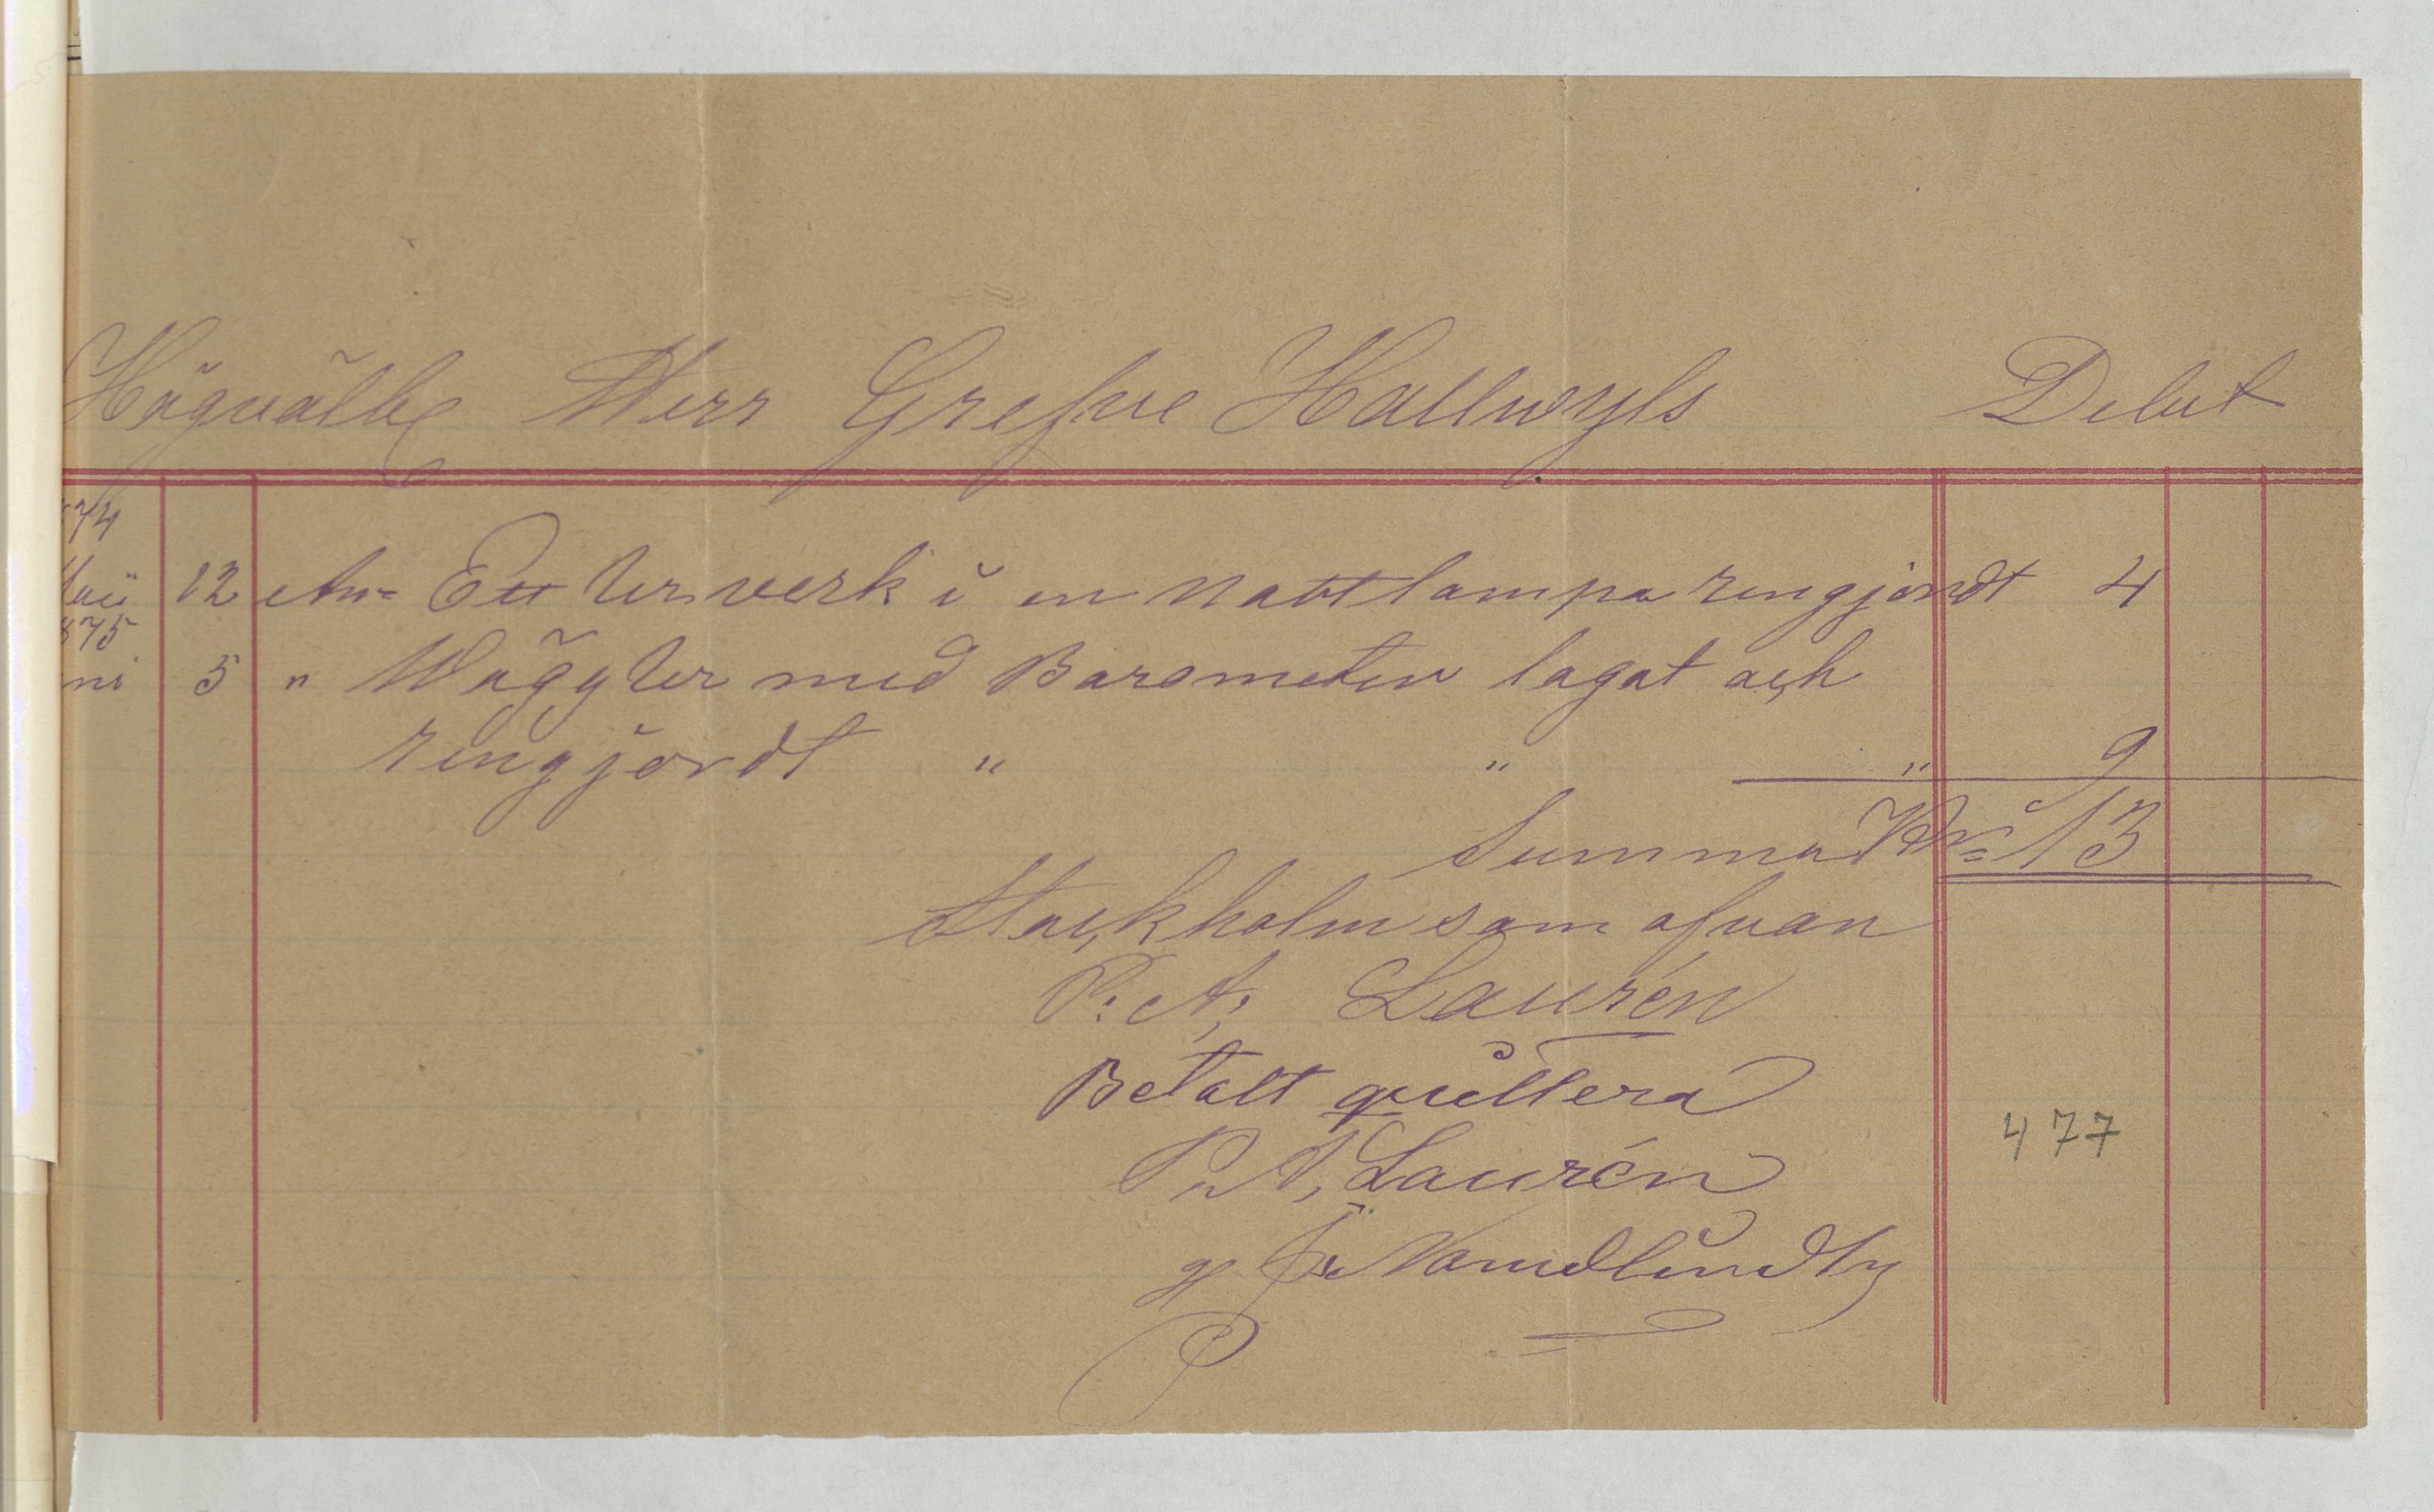 Högvälb Herr Grefve Hallwyls Debet
74
Maii 12 An= Ett Urverk i en Nattlampa rengjordt 4
875
ni 5 " Wägg Ur med Barometer lagat och
rengjordt " " " 9
Summa Kr= 13
Stockholm som ofvan
P: A; Laurén
Betalt qvittera
P. A, Laurén
477